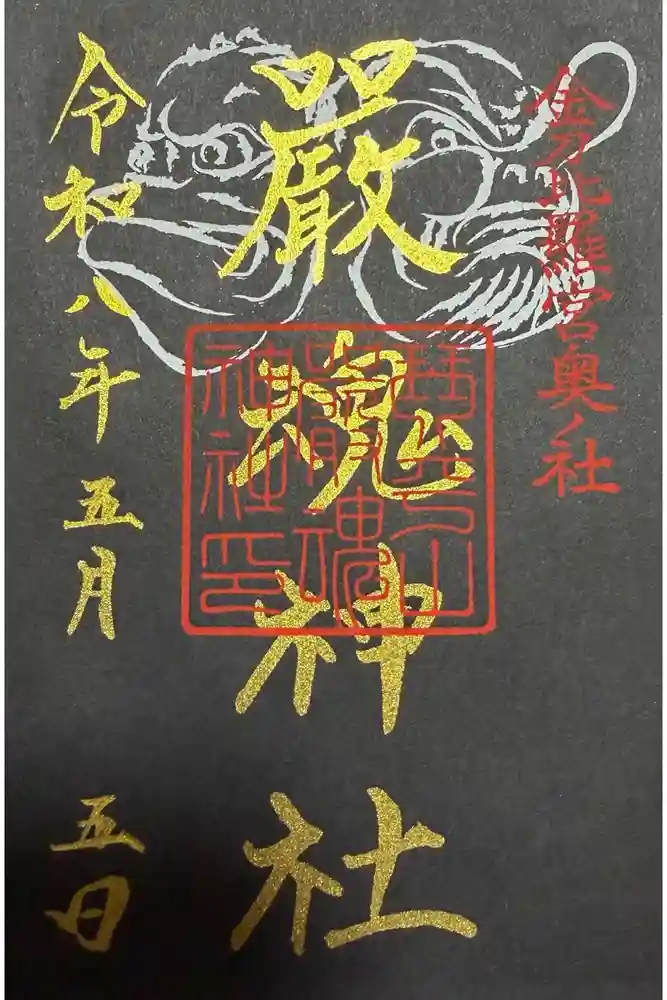 金刀比羅宮奥ノ社
嚴魂神社
琴平山
嚴魂
神社印
令和八年五月五日